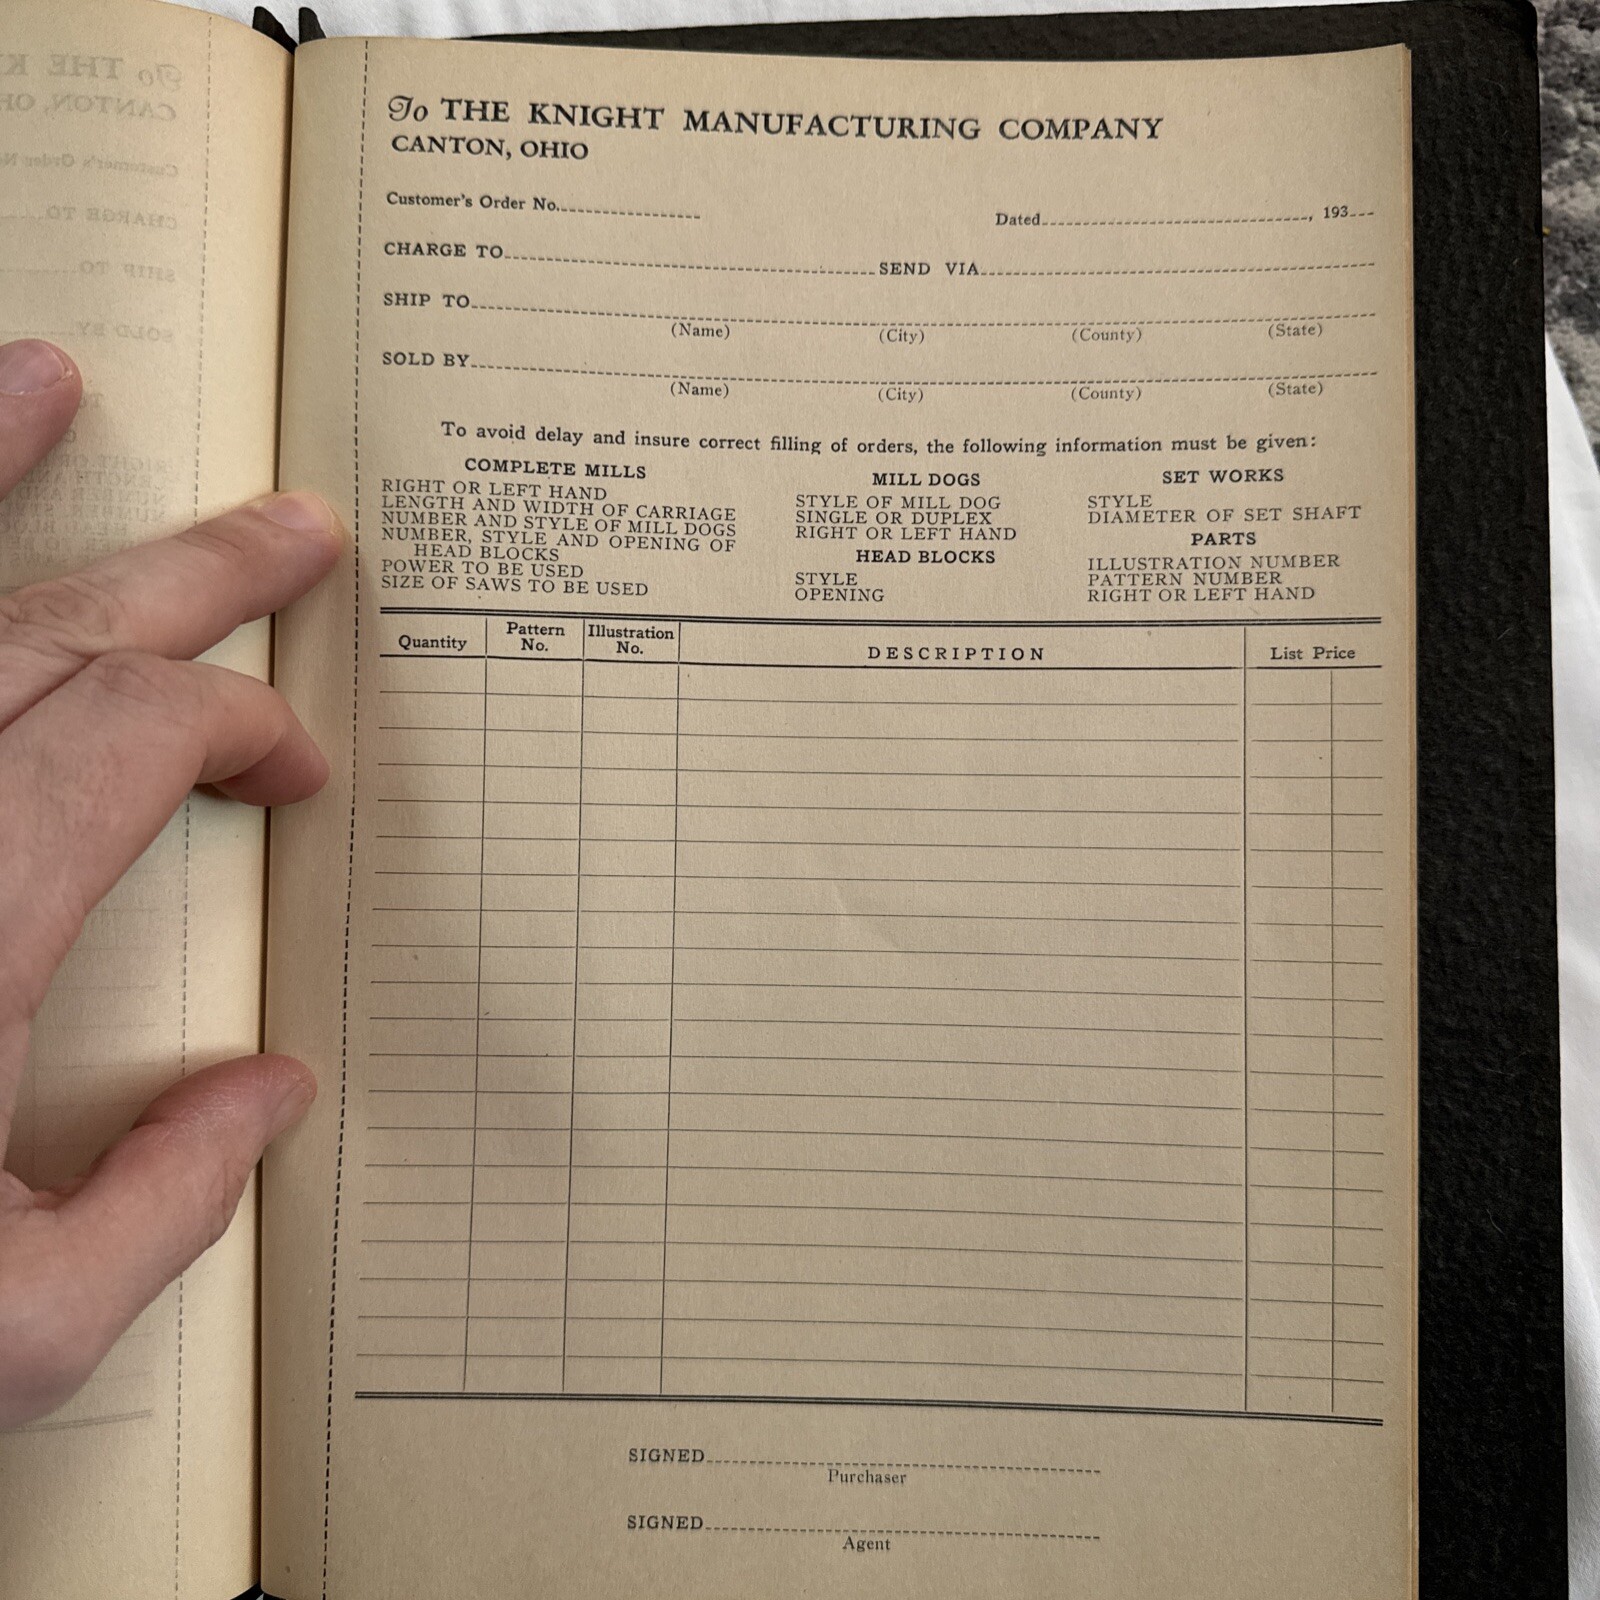 To THE KNIGHT MANUFACTURING COMPANY
CANTON, OHIO
Customer's Order No.
Dated , 193
CHARGE TO SEND VIA
SHIP TO
(Name) (City) (County) (State)
SOLD BY
(Name) (City) (County) (State)
To avoid delay and insure correct filling of orders, the following information must be given:
COMPLETE MILLS
RIGHT OR LEFT HAND
LENGTH AND WIDTH OF CARRIAGE
NUMBER AND STYLE OF MILL DOGS
NUMBER, STYLE AND OPENING OF
HEAD BLOCKS
POWER TO BE USED
SIZE OF SAWS TO BE USED
MILL DOGS
STYLE OF MILL DOG
SINGLE OR DUPLEX
RIGHT OR LEFT HAND
HEAD BLOCKS
STYLE
OPENING
SET WORKS
STYLE
DIAMETER OF SET SHAFT
PARTS
ILLUSTRATION NUMBER
PATTERN NUMBER
RIGHT OR LEFT HAND
Quantity
Pattern
No.
Illustration
No.
DESCRIPTION
List Price
SIGNED
Purchaser
SIGNED
Agent